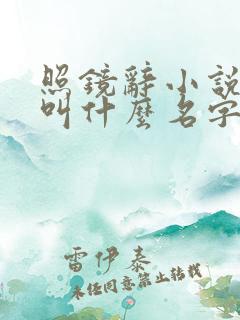 照鏡辭小說
叫什麼名字
雷伊泰
未经同意禁止转载